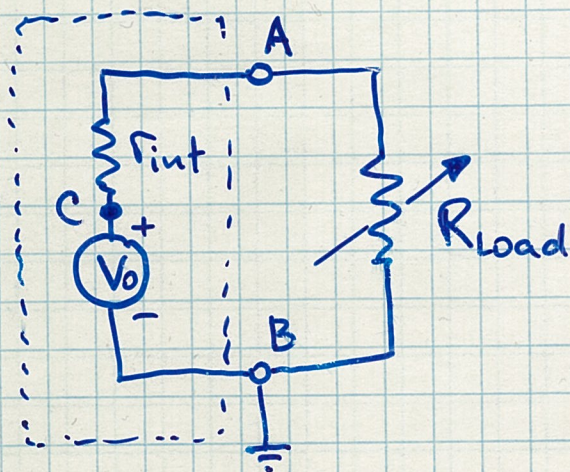 A
rint
C
+
Vo
-
RLoad
B